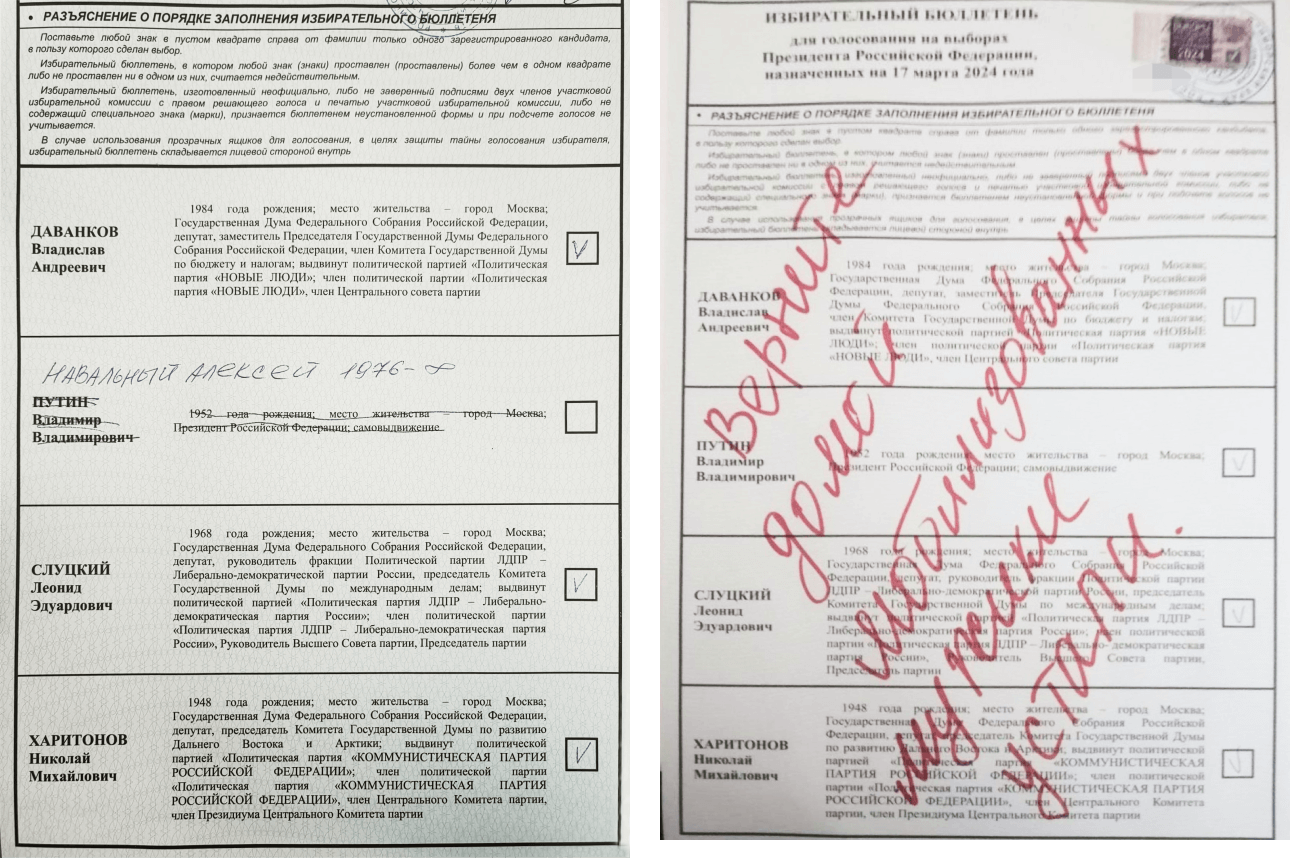 • РАЗЪЯСНЕНИЕ О ПОРЯДКЕ ЗАПОЛНЕНИЯ ИЗБИРАТЕЛЬНОГО БЮЛЛЕТЕНЯ
Поставьте любой знак в пустом квадрате справа от фамилии только одного зарегистрированного кандидата,
в пользу которого сделан выбор.
Избирательный бюллетень, в котором любой знак (знаки) проставлен (проставлены) более чем в одном квадрате
либо не проставлен ни в одном из них, считается недействительным.
Избирательный бюллетень, изготовленный неофициально, либо не заверенный подписями двух членов участковой
избирательной комиссии с правом решающего голоса и печатью участковой избирательной комиссии, либо не
содержащий специального знака (марки), признается бюллетенем неустановленной формы и при подсчете голосов не
учитывается.
В случае использования прозрачных ящиков для голосования, в целях защиты тайны голосования избирателя,
избирательный бюллетень складывается лицевой стороной внутрь
ДАВАНКОВ
Владислав
Андреевич
1984 года рождения; место жительства – город Москва;
Государственная Дума Федерального Собрания Российской Федерации,
депутат, заместитель Председателя Государственной Думы Федерального
Собрания Российской Федерации, член Комитета Государственной Думы
по бюджету и налогам; выдвинут политической партией «Политическая
партия «НОВЫЕ ЛЮДИ»; член политической партии «Политическая
партия «НОВЫЕ ЛЮДИ», член Центрального совета партии
НАВАЛЬНЫЙ АЛЕКСЕЙ 1976-∞
ПУТИН
Владимир
Владимирович
1952 года рождения; место жительства – город Москва;
Президент Российской Федерации; самовыдвижение
СЛУЦКИЙ
Леонид
Эдуардович
1968 года рождения; место жительства – город Москва;
Государственная Дума Федерального Собрания Российской Федерации,
депутат, руководитель фракции Политической партии ЛДПР –
Либерально-демократической партии России, председатель Комитета
Государственной Думы по международным делам; выдвинут
политической партией «Политическая партия ЛДПР – Либерально-
демократическая партия России»; член политической партии
«Политическая партия ЛДПР – Либерально-демократическая партия
России», Руководитель Высшего Совета партии, Председатель партии
ХАРИТОНОВ
Николай
Михайлович
1948 года рождения; место жительства – город Москва;
Государственная Дума Федерального Собрания Российской Федерации,
депутат, председатель Комитета Государственной Думы по развитию
Дальнего Востока и Арктики; выдвинут политической
партией «Политическая партия «КОММУНИСТИЧЕСКАЯ ПАРТИЯ
РОССИЙСКОЙ ФЕДЕРАЦИИ»; член политической партии
«Политическая партия «КОММУНИСТИЧЕСКАЯ ПАРТИЯ
РОССИЙСКОЙ ФЕДЕРАЦИИ», член Центрального Комитета партии,
член Президиума Центрального Комитета партии
ИЗБИРАТЕЛЬНЫЙ БЮЛЛЕТЕНЬ
для голосования на выборах
Президента Российской Федерации,
назначенных на 17 марта 2024 года
2024
• РАЗЪЯСНЕНИЕ О ПОРЯДКЕ ЗАПОЛНЕНИЯ ИЗБИРАТЕЛЬНОГО БЮЛЛЕТЕНЯ
Поставьте любой знак в пустом квадрате справа от фамилии только одного зарегистрированного кандидата,
в пользу которого сделан выбор.
Избирательный бюллетень, в котором любой знак (знаки) проставлен (проставлены) более чем в одном квадрате
либо не проставлен ни в одном из них, считается недействительным.
Избирательный бюллетень, изготовленный неофициально, либо не заверенный подписями двух членов участковой
избирательной комиссии с правом решающего голоса и печатью участковой избирательной комиссии, либо не
содержащий специального знака (марки), признается бюллетенем неустановленной формы и при подсчете голосов не
учитывается.
В случае использования прозрачных ящиков для голосования, в целях защиты тайны голосования избирателя,
избирательный бюллетень складывается лицевой стороной внутрь
ДАВАНКОВ
Владислав
Андреевич
1984 года рождения; место жительства – город Москва;
Государственная Дума Федерального Собрания Российской
Федерации, депутат, заместитель Председателя Государственной
Думы Федерального Собрания Российской Федерации,
член Комитета Государственной Думы по бюджету и налогам;
выдвинут политической партией «Политическая партия «НОВЫЕ
ЛЮДИ»; член политической партии «Политическая партия
«НОВЫЕ ЛЮДИ», член Центрального совета партии
ПУТИН
Владимир
Владимирович
1952 года рождения; место жительства – город Москва;
Президент Российской Федерации; самовыдвижение
СЛУЦКИЙ
Леонид
Эдуардович
1968 года рождения; место жительства – город Москва;
Государственная Дума Федерального Собрания Российской
Федерации, депутат, руководитель фракции Политической партии
ЛДПР – Либерально-демократической партии России, председатель
Комитета Государственной Думы по международным делам;
выдвинут политической партией «Политическая партия ЛДПР –
Либерально-демократическая партия России»; член политической
партии «Политическая партия ЛДПР – Либерально- демократическая
партия России», Руководитель Высшего Совета партии,
Председатель партии
ХАРИТОНОВ
Николай
Михайлович
1948 года рождения; место жительства – город Москва;
Государственная Дума Федерального Собрания Российской
Федерации, депутат, председатель Комитета Государственной Думы
по развитию Дальнего Востока и Арктики; выдвинут политической
партией «Политическая партия «КОММУНИСТИЧЕСКАЯ
ПАРТИЯ РОССИЙСКОЙ ФЕДЕРАЦИИ»; член политической
партии «Политическая партия «КОММУНИСТИЧЕСКАЯ ПАРТИЯ
РОССИЙСКОЙ ФЕДЕРАЦИИ», член Центрального Комитета
партии, член Президиума Центрального Комитета партии
Верните
домой
мобилизованных
мужики
устали.